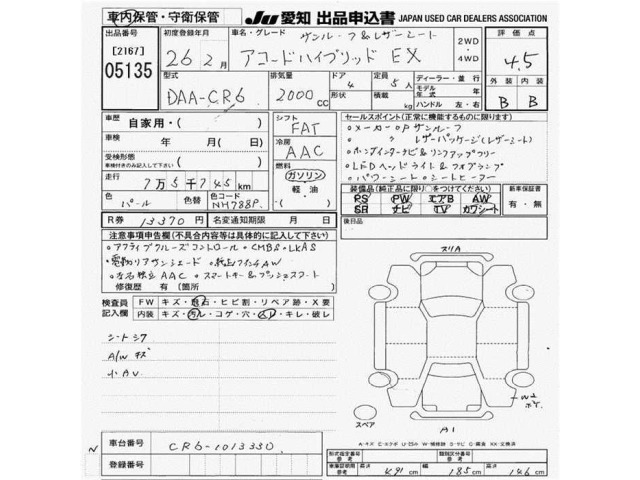 車内保管・守衛保管
JU 愛知 出品申込書 JAPAN USED CAR DEALERS ASSOCIATION
出品番号
[2167]
05135
初度登録年月
26年2月
車名・グレード
サンルーフ&レザーシート
アコードハイブリッド EX
2WD
・
4WD
評価点
4.5
型式
DAA-CR6
排気量
2000cc
ドア
4
形状
定員
5人
積載
kg
ディーラー・並行
モデル年式 年
ハンドル 左・右
外装 内装
B B
車歴
自家用・( )
車検
年 月( )日
受検形態
車検付きのみ記入して下さい
( )
走行
7万5千745km
色
パール
色替
色コード
NH788P
シフト
FAT
冷房
AAC
燃料
ガソリン
軽油
( )
セールスポイント(正常に機能するものに限ります)
・メーカーOPサンルーフ
・ 〃 レザーパッケージ(レザーシート)
・ホンダインターナビ&リンクアップフリー
・LEDヘッドライト&フォグランプ
・パワーシート・シートヒーター
装備品(純正品に限り○をつけてください)
PS PW エアB AW
SR ナビ TV カワシート
新車保証書
有・無
R券 13370円
名変通知期限 月 日
後日品
注意事項申告欄(不具合内容等は具体的に記入して下さい)
・アクティブクルーズコントロール・CMBS・LKAS
・電動リアサンシェード・純正17インチAW
・左右独立AAC・スマートキー&プッシュスタート
修復歴 有(箇所 )
検査員記入欄
FW キズ・飛石・ヒビ割・リペア跡・X要
内装 キズ・汚レ・コゲ・穴・スレ・キレ・破レ
シートシワ
A/Wキズ
小AU
スリA
スペア
A1
A-キズ E-エクボ U-凹み W-補修跡 S-サビ C-腐食 XX-交換済
N
車台番号
CR6-1013350
登録番号
形式指定番号
参考
類別区分番号
参考
車量証明用
参考
長さ 491cm
幅 185cm
高さ 146cm